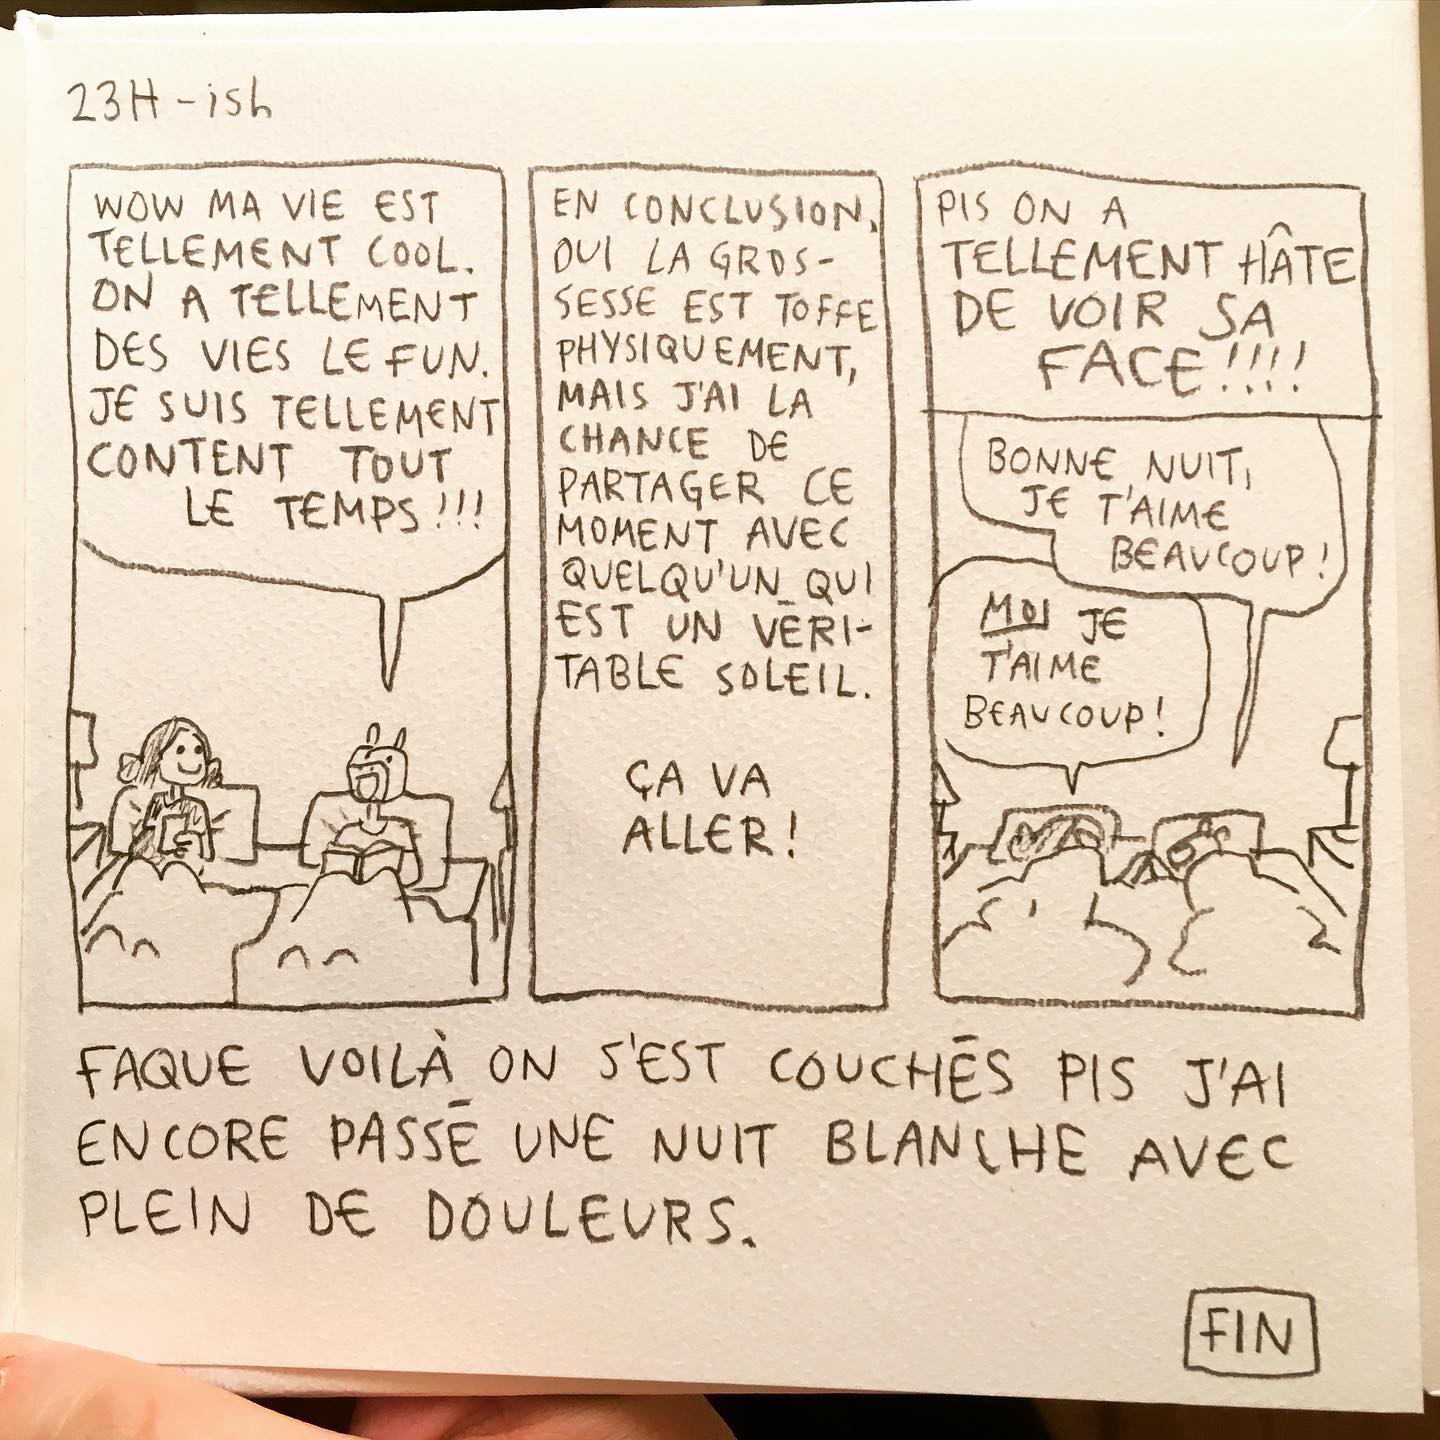 23H-ish
WOW MA VIE EST
TELLEMENT COOL.
ON A TELLEMENT
DES VIES LE FUN.
JE SUIS TELLEMENT
CONTENT TOUT
LE TEMPS!!!
EN CONCLUSION,
OUI LA GROS-
SESSE EST TOFFE
PHYSIQUEMENT,
MAIS J'AI LA
CHANCE DE
PARTAGER CE
MOMENT AVEC
QUELQU'UN QUI
EST UN VÉRI-
TABLE SOLEIL.
ÇA VA
ALLER!
PIS ON A
TELLEMENT HÂTE
DE VOIR SA
FACE!!!!
BONNE NUIT,
JE T'AIME
BEAUCOUP!
MOI JE
T'AIME
BEAUCOUP!
FAQUE VOILÀ ON S'EST COUCHÉS PIS J'AI
ENCORE PASSÉ UNE NUIT BLANCHE AVEC
PLEIN DE DOULEURS.
FIN